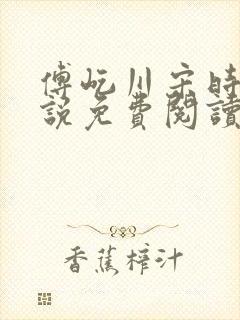 傅屹川宋時
說免費閱讀
香蕉榨汁